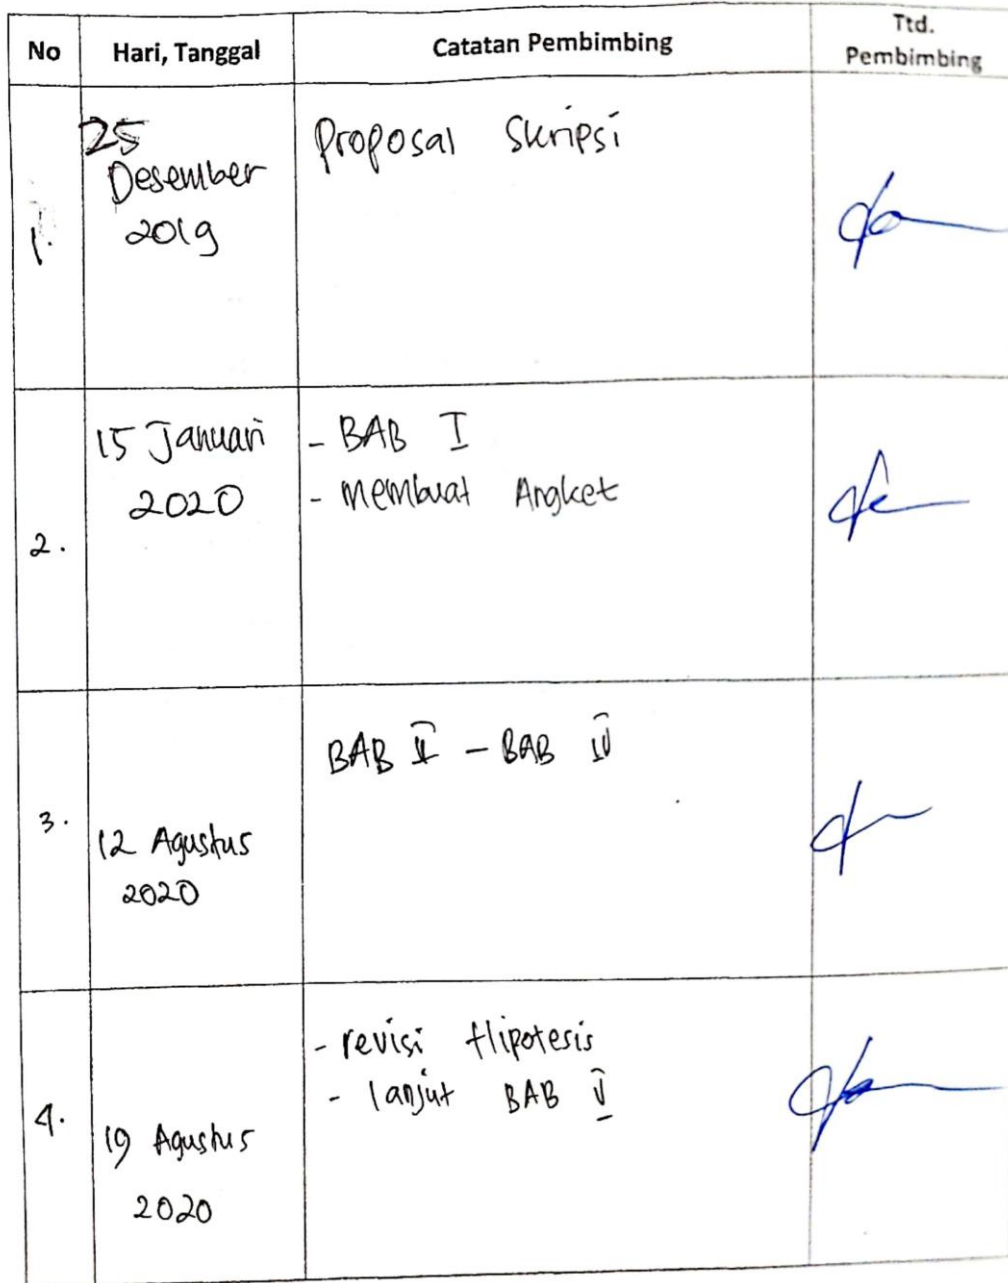 No Hari, Tanggal Catatan Pembimbing Ttd. Pembimbing
1. 25 Desember 2019 Proposal Skripsi
2. 15 Januari 2020 - BAB I
- membuat Angket
3. 12 Agustus 2020 BAB II - BAB IV
4. 19 Agustus 2020 - revisi Hipotesis
- lanjut BAB V